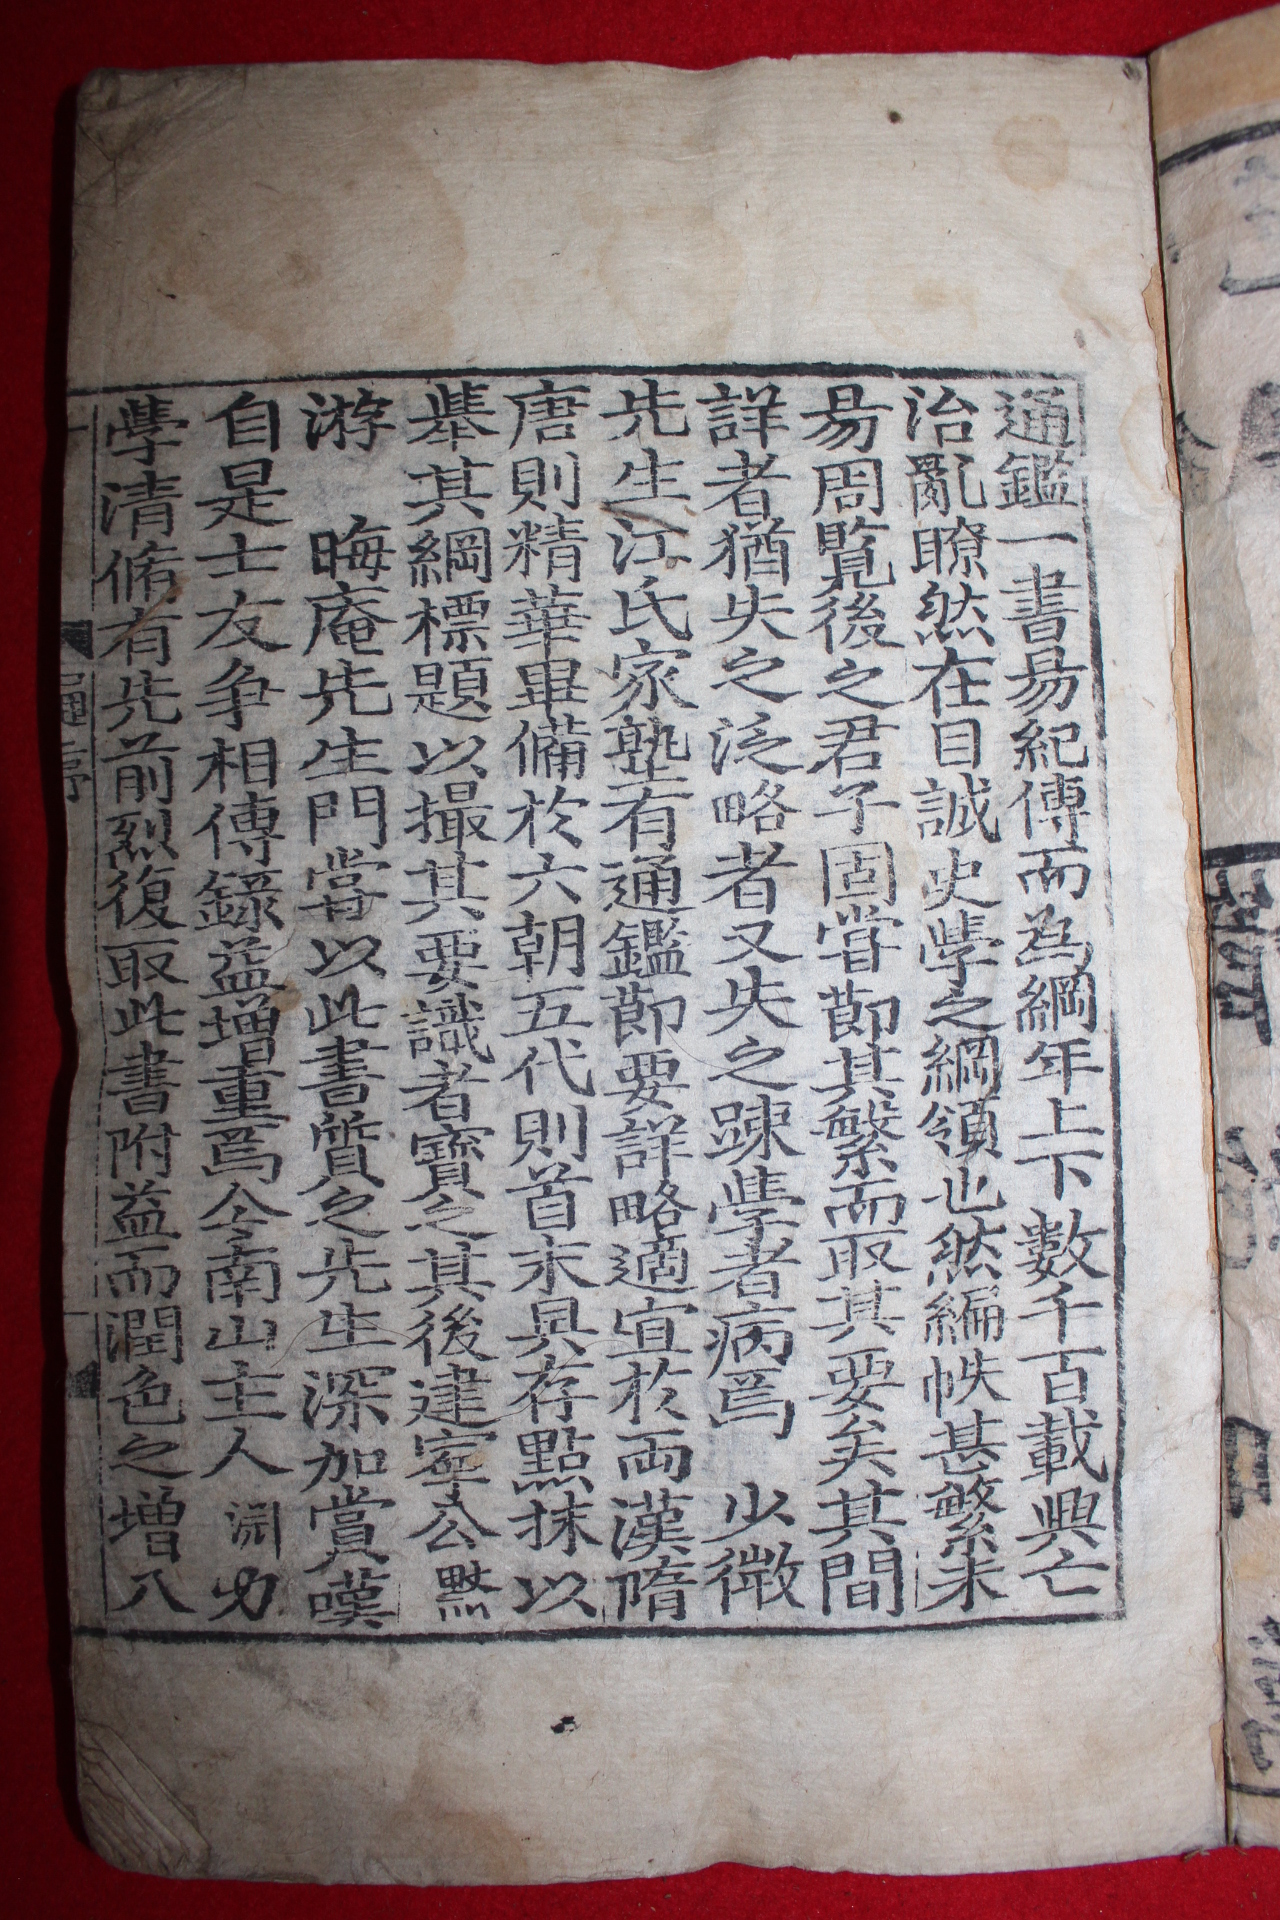 通鑑一書易紀傳而爲綱年上下數千百載興亡
治亂瞭然在目誠史學之綱領也然編帙甚繁未
易周覽後之君子固當節其繁而取其要矣其間
詳者猶失之泛略者又失之踈學者病焉 少微
先生江氏家塾有通鑑節要詳略適宜於兩漢隋
唐則精華畢備於六朝五代則首末具存點抹以
擧其綱標題以撮其要識者寶之其後建寧公默
游 晦庵先生門嘗以此書質之先生深加賞嘆
自是士友争相傳錄益增重焉今南山主人淵力
學清脩有先前烈復取此書附益而潤色之增入
通序